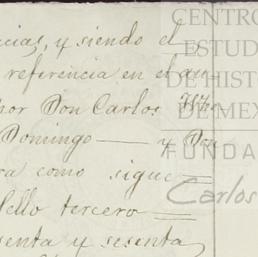 cias, y siendo el
referencia en el an-
nor Don Carlos
Domingo — y Don
ra como sigue =
Sello tercero =
senta y sesenta
CENTRO
ESTUD
DE HIST
DE MEX
FUNDA
Carlos